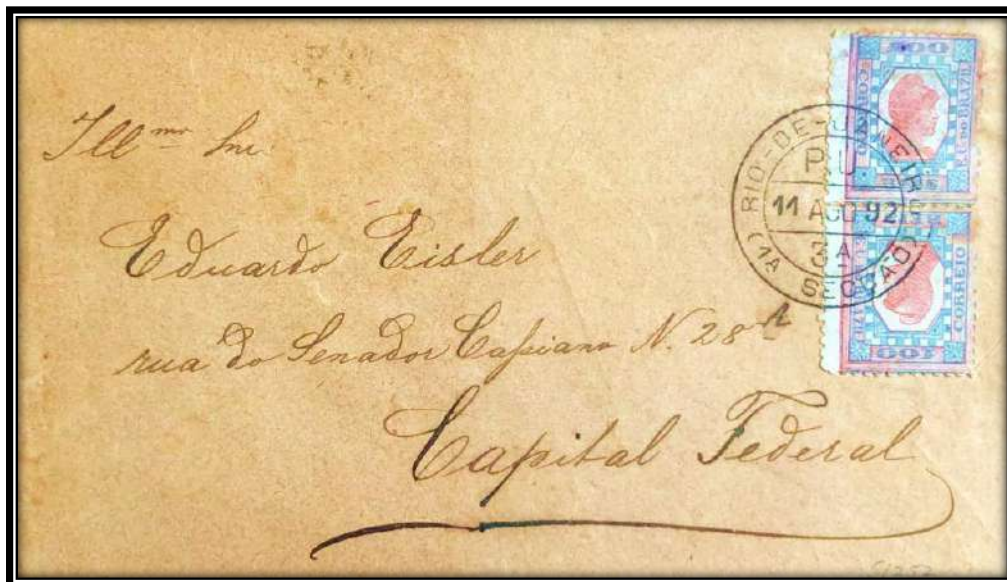 Ill^mo Snr
Eduardo Eisler
rua do Senador Cassiano N. 28
Capital Federal
RIO-DE-JANEIRO
P.U
11 AGO 92
3A
(1A SECÇÃO)
CORREIO
E.U. DO BRAZIL
100
REIS
CORREIO
100